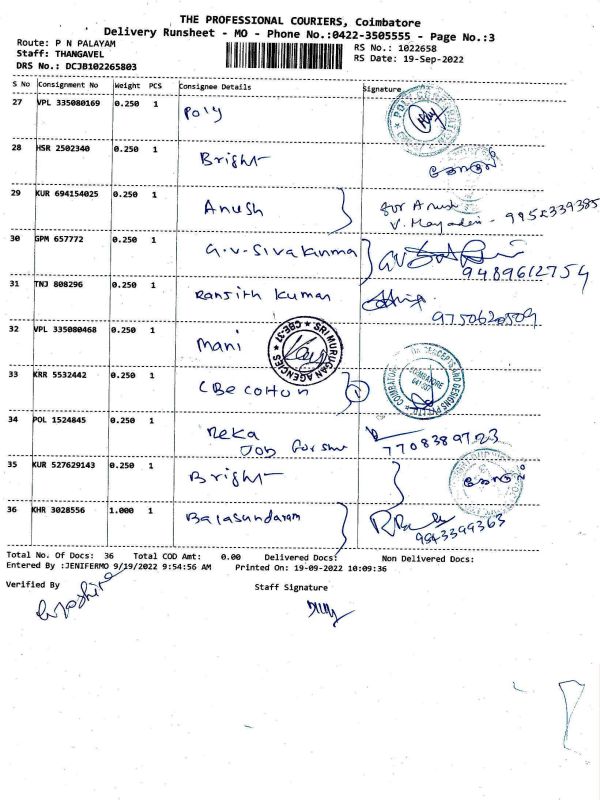 THE PROFESSIONAL COURIERS, Coimbatore
Delivery Runsheet - MO - Phone No.:0422-3505555 - Page No.:3
Route: P N PALAYAM
Staff: THANGAVEL
DRS No.: DCJB102265803
RS No.: 1022658
RS Date: 19-Sep-2022
S No Consignment No Weight PCS Consignee Details Signature
27 VPL 335080169 0.250 1 Poly
28 HSR 2502340 0.250 1 Bright
29 KUR 694154025 0.250 1 Anush for Anush
30 GPM 657772 0.250 1 G.V-Sivakumar
9489612754
31 TNJ 808296 0.250 1 Ranjith Kumar
9750620509
32 VPL 335080468 0.250 1 Mani
SRI MURUGAN AGENCIES ★ CBE-37 ★
33 KRR 5532442 0.250 1 CBE Cotton 1
34 POL 1524845 0.250 1 Meka
Job 7708389723
35 KUR 527629143 0.250 1 Bright
36 KHR 3028556 1.000 1 Balasundaram
9943399363
Total No. Of Docs: 36 Total COD Amt: 0.00 Delivered Docs: Non Delivered Docs:
Entered By :JENIFERMO 9/19/2022 9:54:56 AM Printed On: 19-09-2022 10:09:36
Verified By Staff Signature